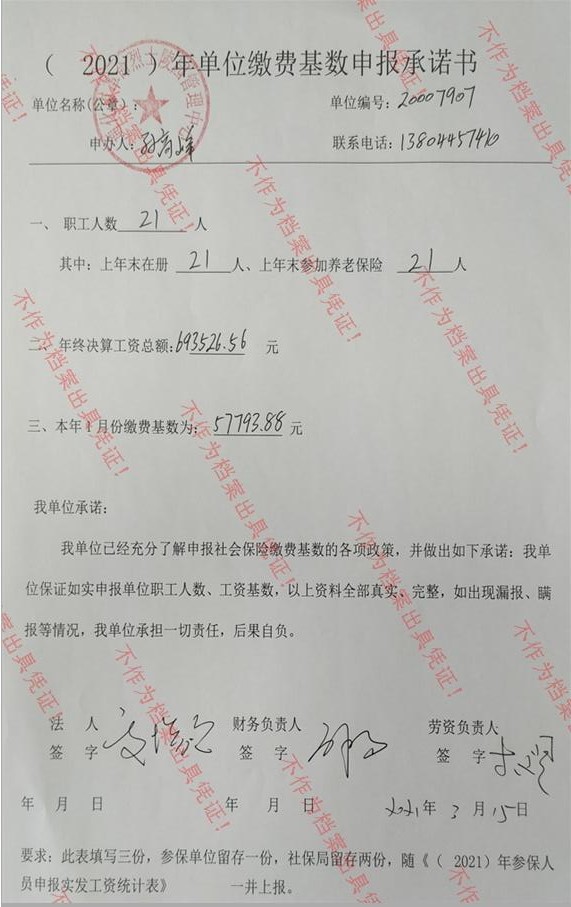 （ 2021 ）年单位缴费基数申报承诺书
单位名称（公章）： 单位编号：20007907
申办人： 联系电话：13804457410
一、 职工人数 21 人
其中：上年末在册 21 人、上年末参加养老保险 21 人
二、年终决算工资总额：693526.56 元
三、本年1月份缴费基数为：57793.88 元
我单位承诺：
我单位已经充分了解申报社会保险缴费基数的各项政策，并做出如下承诺：我单
位保证如实申报单位职工人数、工资基数，以上资料全部真实、完整，如出现漏报、瞒
报等情况，我单位承担一切责任，后果自负。
法 人 财务负责人 劳资负责人
签 字 签 字 签 字
年 月 日 年 月 日 2021年 3 月 15日
要求：此表填写三份，参保单位留存一份，社保局留存两份，随《（ 2021）年参保人
员申报实发工资统计表》 一并上报。
不作为档案出具凭证！